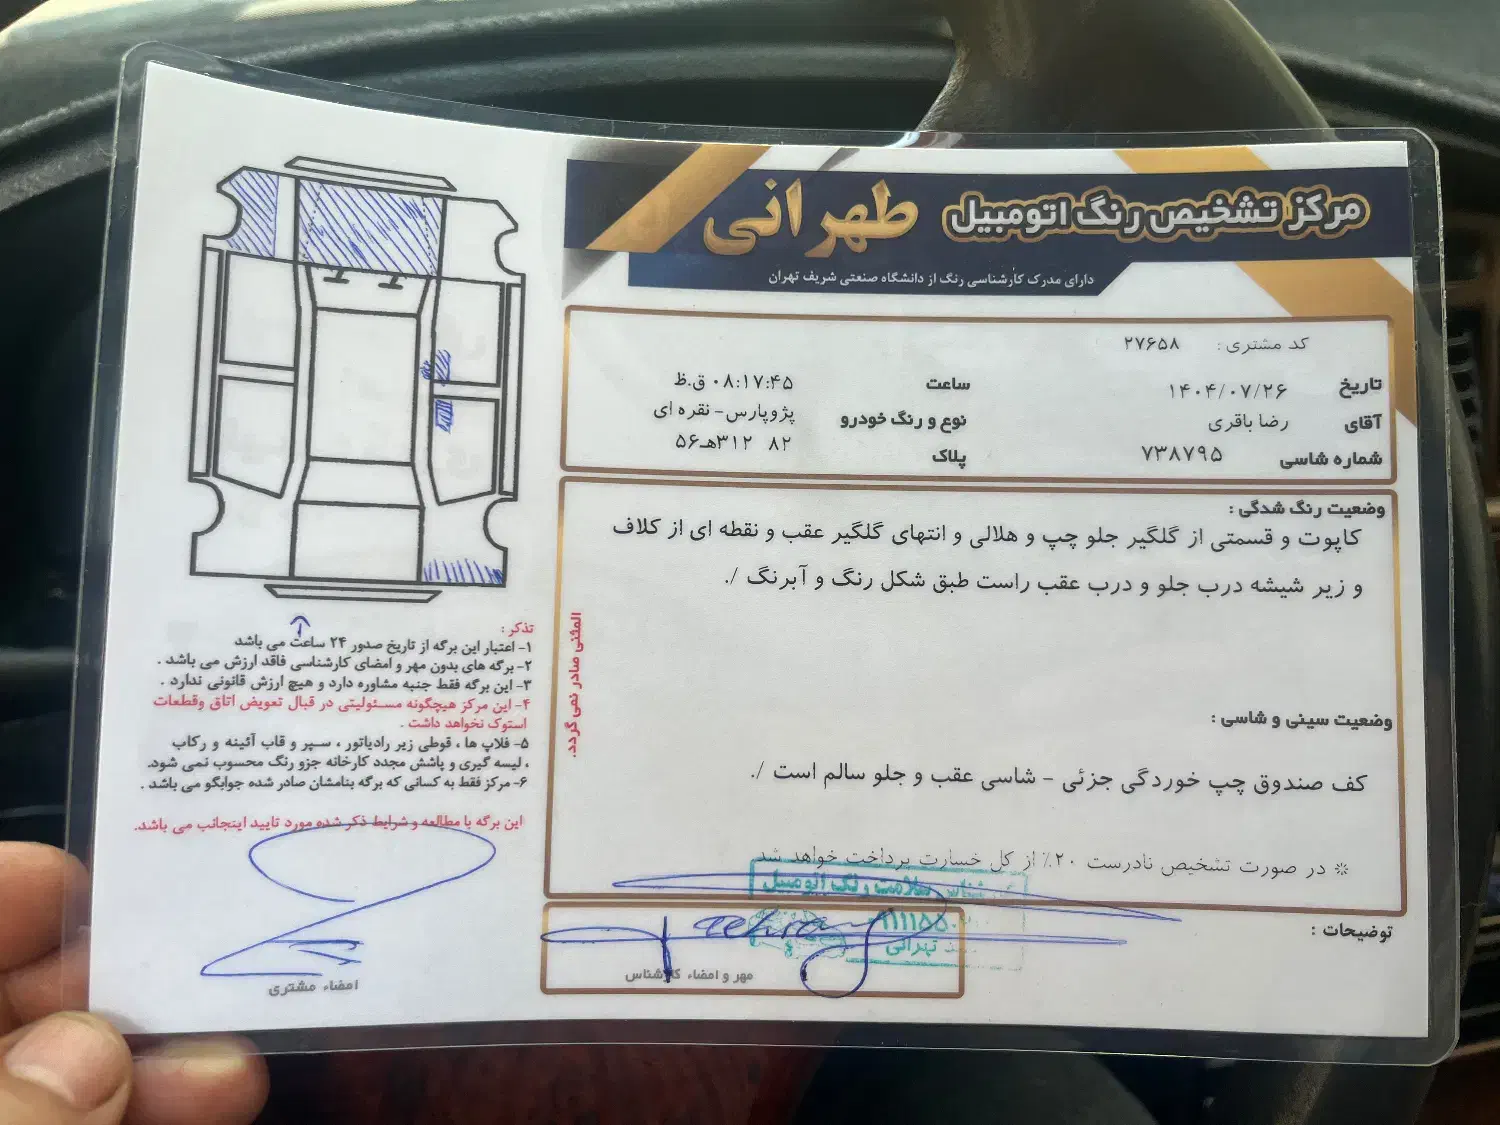 مرکز تشخیص رنگ اتومبیل طهرانی
دارای مدرک کارشناسی رنگ از دانشگاه صنعتی شریف تهران
کد مشتری : ۲۷۶۵۸
تاریخ ۱۴۰۴/۰۷/۲۶ ساعت ۰۸:۱۷:۴۵ ق.ظ
آقای رضا باقری نوع و رنگ خودرو پژوپارس- نقره ای
شماره شاسی ۷۳۸۷۹۵ پلاک ۸۲ ۳۱۲هـ۵۶
وضعیت رنگ شدگی :
کاپوت و قسمتی از گلگیر جلو چپ و هلالی و انتهای گلگیر عقب و نقطه ای از کلاف
و زیر شیشه درب جلو و درب عقب راست طبق شکل رنگ و آبرنگ /.
وضعیت سینی و شاسی :
کف صندوق چپ خوردگی جزئی - شاسی عقب و جلو سالم است /.
※ در صورت تشخیص نادرست ۲۰٪ از کل خسارت پرداخت خواهد شد
توضیحات :
سلامت و رنگ اتومبیل
تهرانی
مهر و امضاء کارشناس
المثنی صادر نمی گردد.
تذکر :
۱- اعتبار این برگه از تاریخ صدور ۲۴ ساعت می باشد
۲- برگه های بدون مهر و امضای کارشناسی فاقد ارزش می باشد .
۳- این برگه فقط جنبه مشاوره دارد و هیچ ارزش قانونی ندارد .
۴- این مرکز هیچگونه مسئولیتی در قبال تعویض اتاق وقطعات
استوک نخواهد داشت .
۵- فلاپ ها ، قوطی زیر رادیاتور ، سپر و قاب آئینه و رکاب
، لیسه گیری و پاشش مجدد کارخانه جزو رنگ محسوب نمی شود.
۶- مرکز فقط به کسانی که برگه بنامشان صادر شده جوابگو می باشد .
این برگه با مطالعه و شرایط ذکر شده مورد تایید اینجانب می باشد.
امضاء مشتری